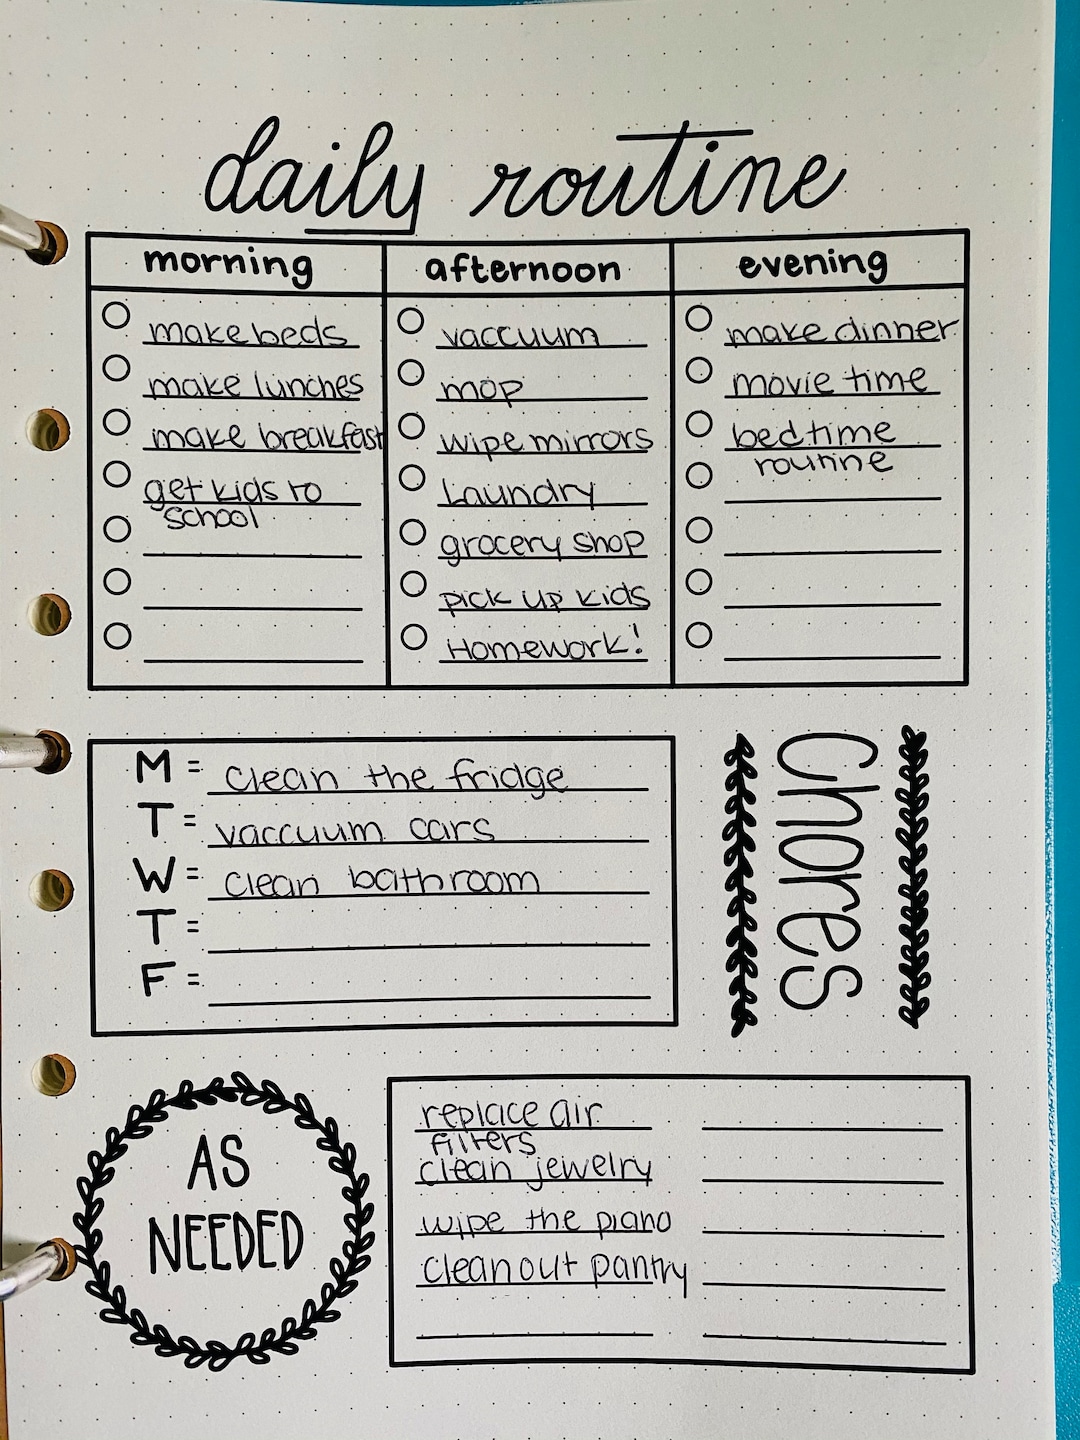 daily routine
morning
make beds
make lunches
make breakfast
get kids to
school
afternoon
vaccuum
mop
wipe mirrors
Laundry
grocery shop
pick up kids
Homework!
evening
make dinner
movie time
bedtime
routine
M = clean the fridge
T = vaccuum cars
W = clean bathroom
T =
F =
Chores
AS
NEEDED
replace air
filters
clean jewelry
wipe the piano
clean out pantry